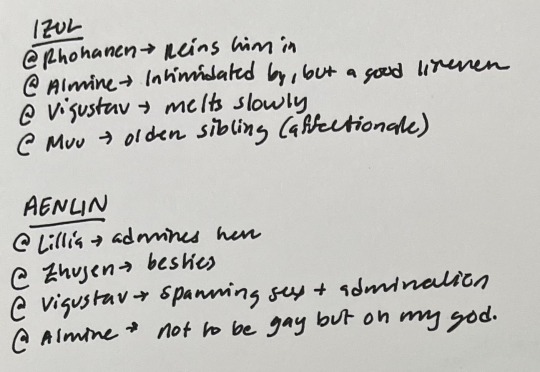 IZUL
@ Rhohanen → Reins him in
@ Almine → Intimidated by, but a good listener
@ Vigustav → melts slowly
@ Muu → older sibling (affectionate)
AENLIN
@ Lillia → admires her
@ Zhusen → besties
@ Vigustav → sparring sess + admiration
@ Almine → not to be gay but oh my god.